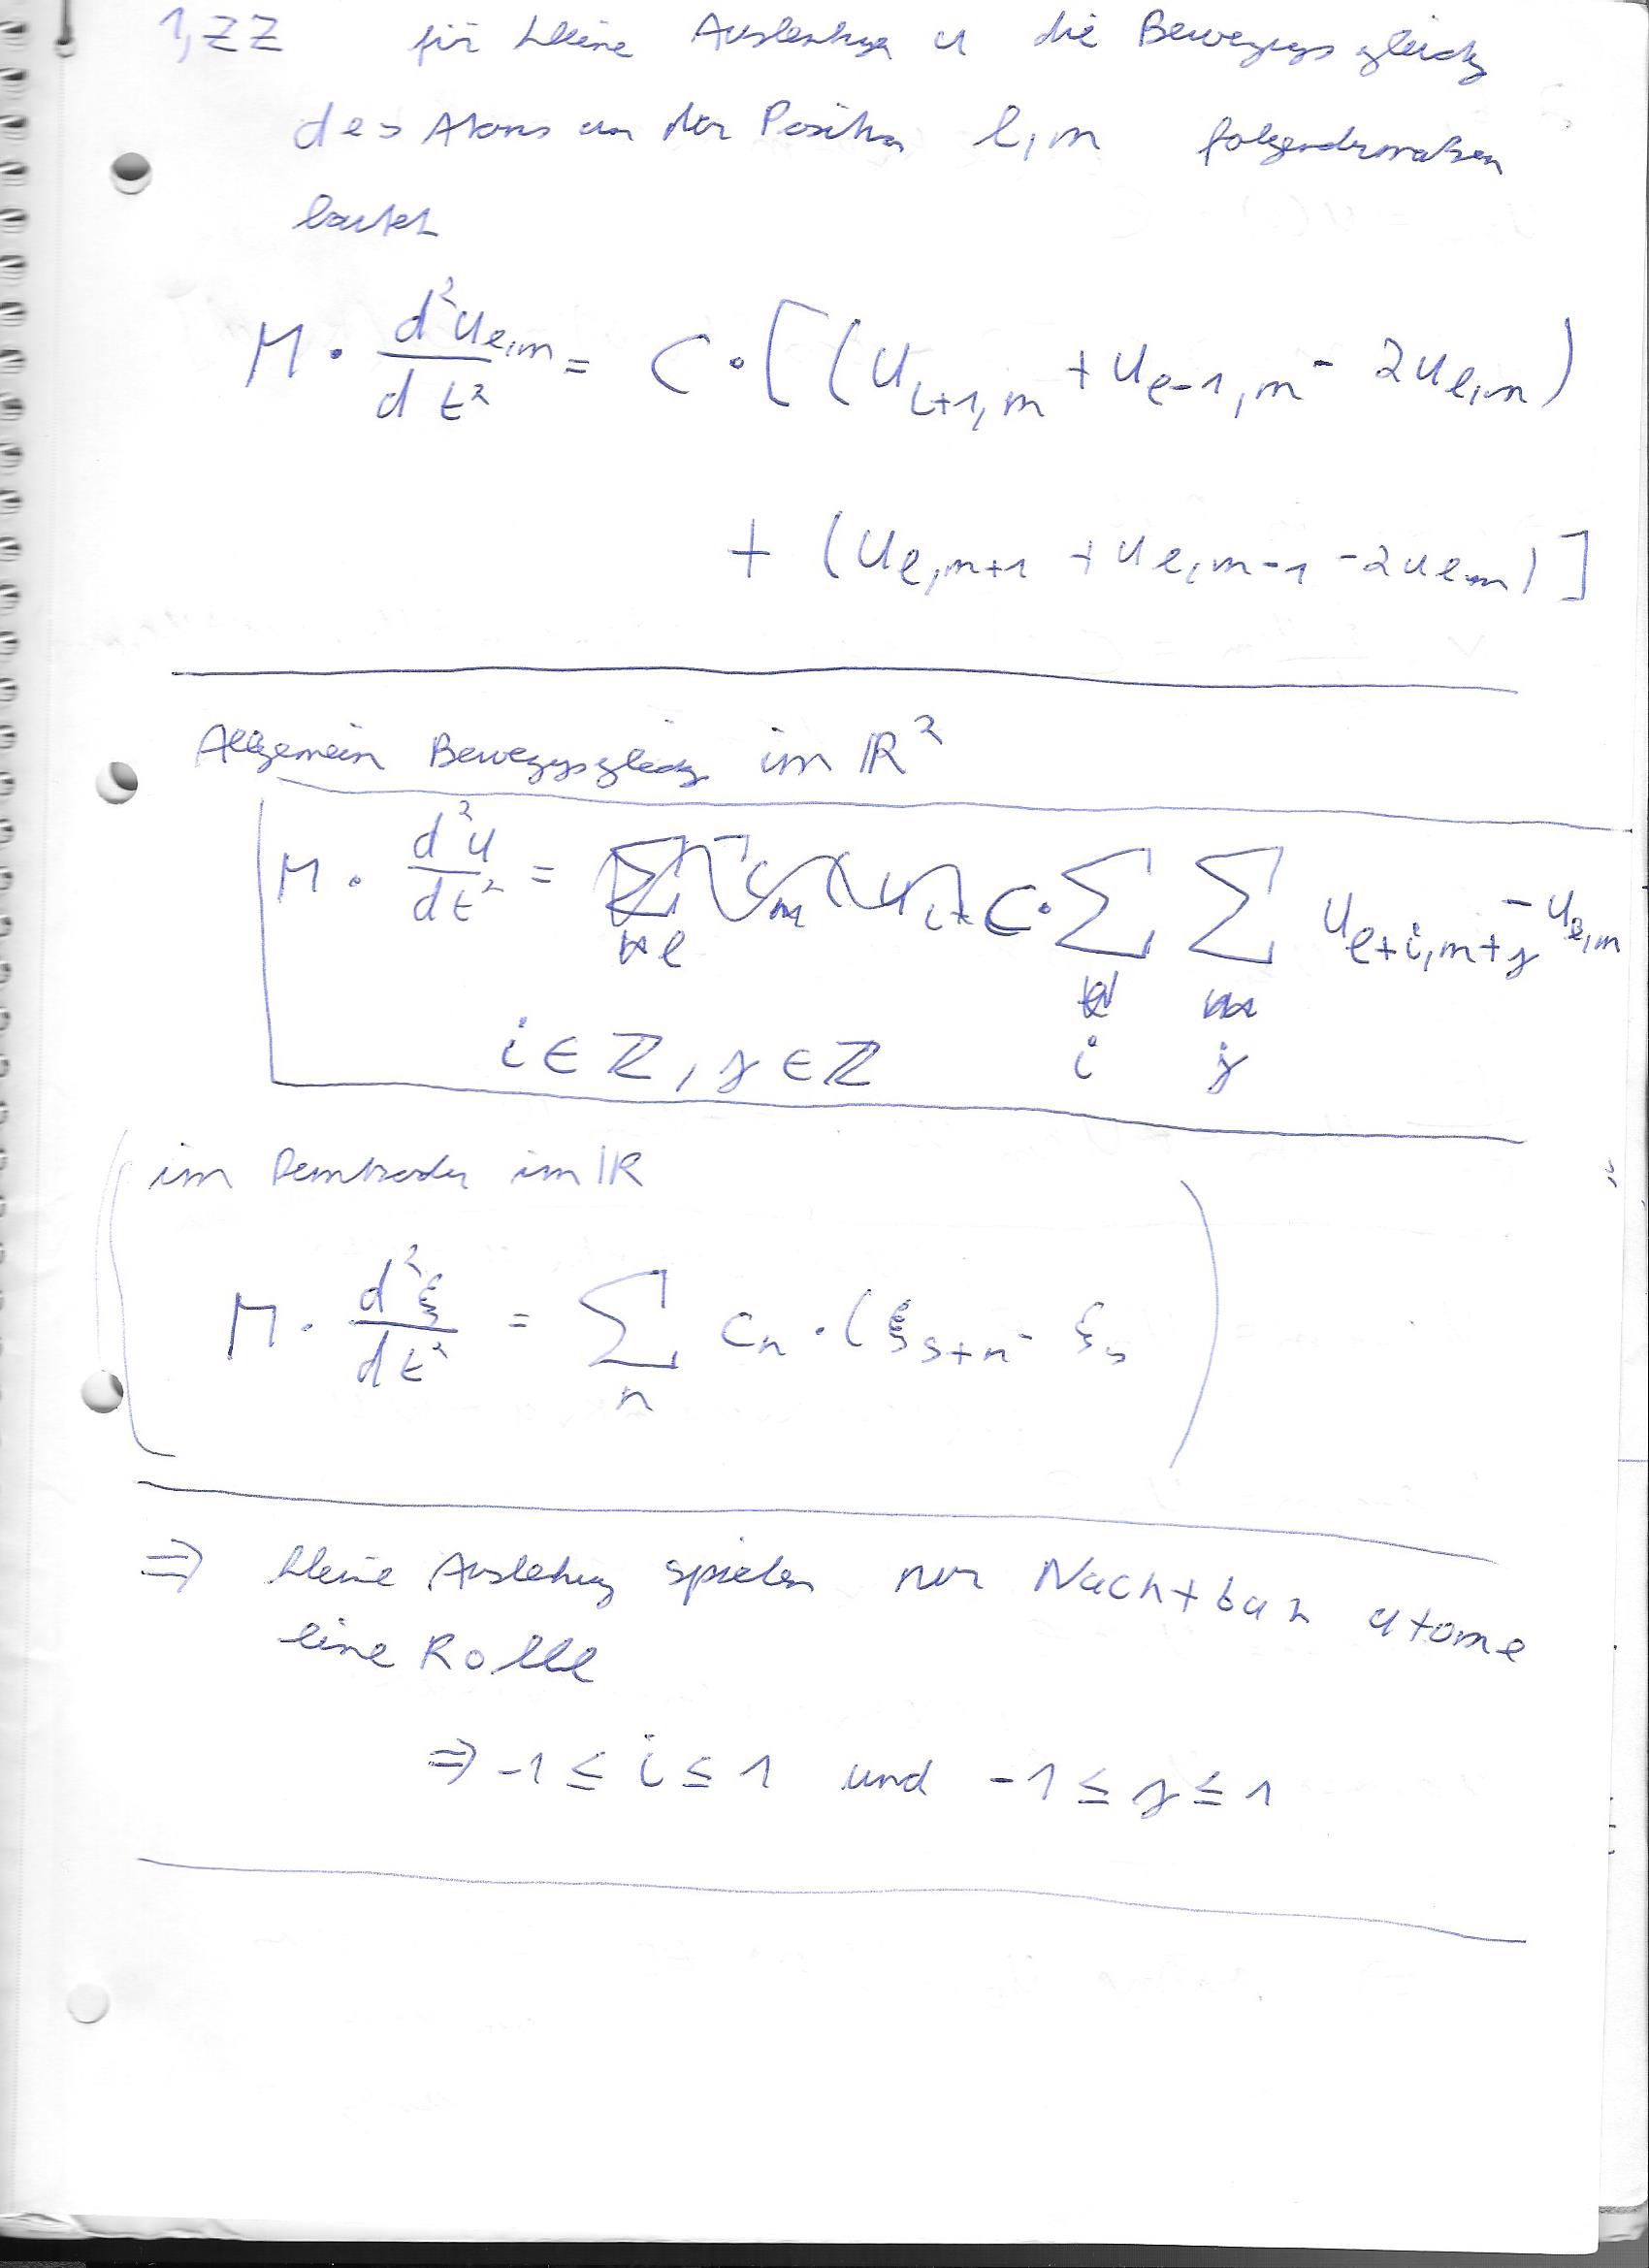 1, ZZ für kleine Auslenkung u die Bewegungsgleichg
des Atoms an der Position l,m folgendermaßen
lautet
M · d²u_{l,m}/dt² = C · [ (u_{l+1,m} + u_{l-1,m} - 2u_{l,m})
+ (u_{l,m+1} + u_{l,m-1} - 2u_{lm}) ]
Allgemein Bewegungsgleichg im ℝ²
M · d²u/dt² = C · ∑_i ∑_j u_{l+i,m+j} - u_{l,m}
i ∈ ℤ, j ∈ ℤ
im Demtröder im ℝ
M · d²ξ/dt² = ∑_n C_n · (ξ_{s+n} - ξ_s
⇒ kleine Auslenkung spielen nur Nachtbar atome
eine Rolle
⇒ -1 ≤ i ≤ 1 und -1 ≤ j ≤ 1